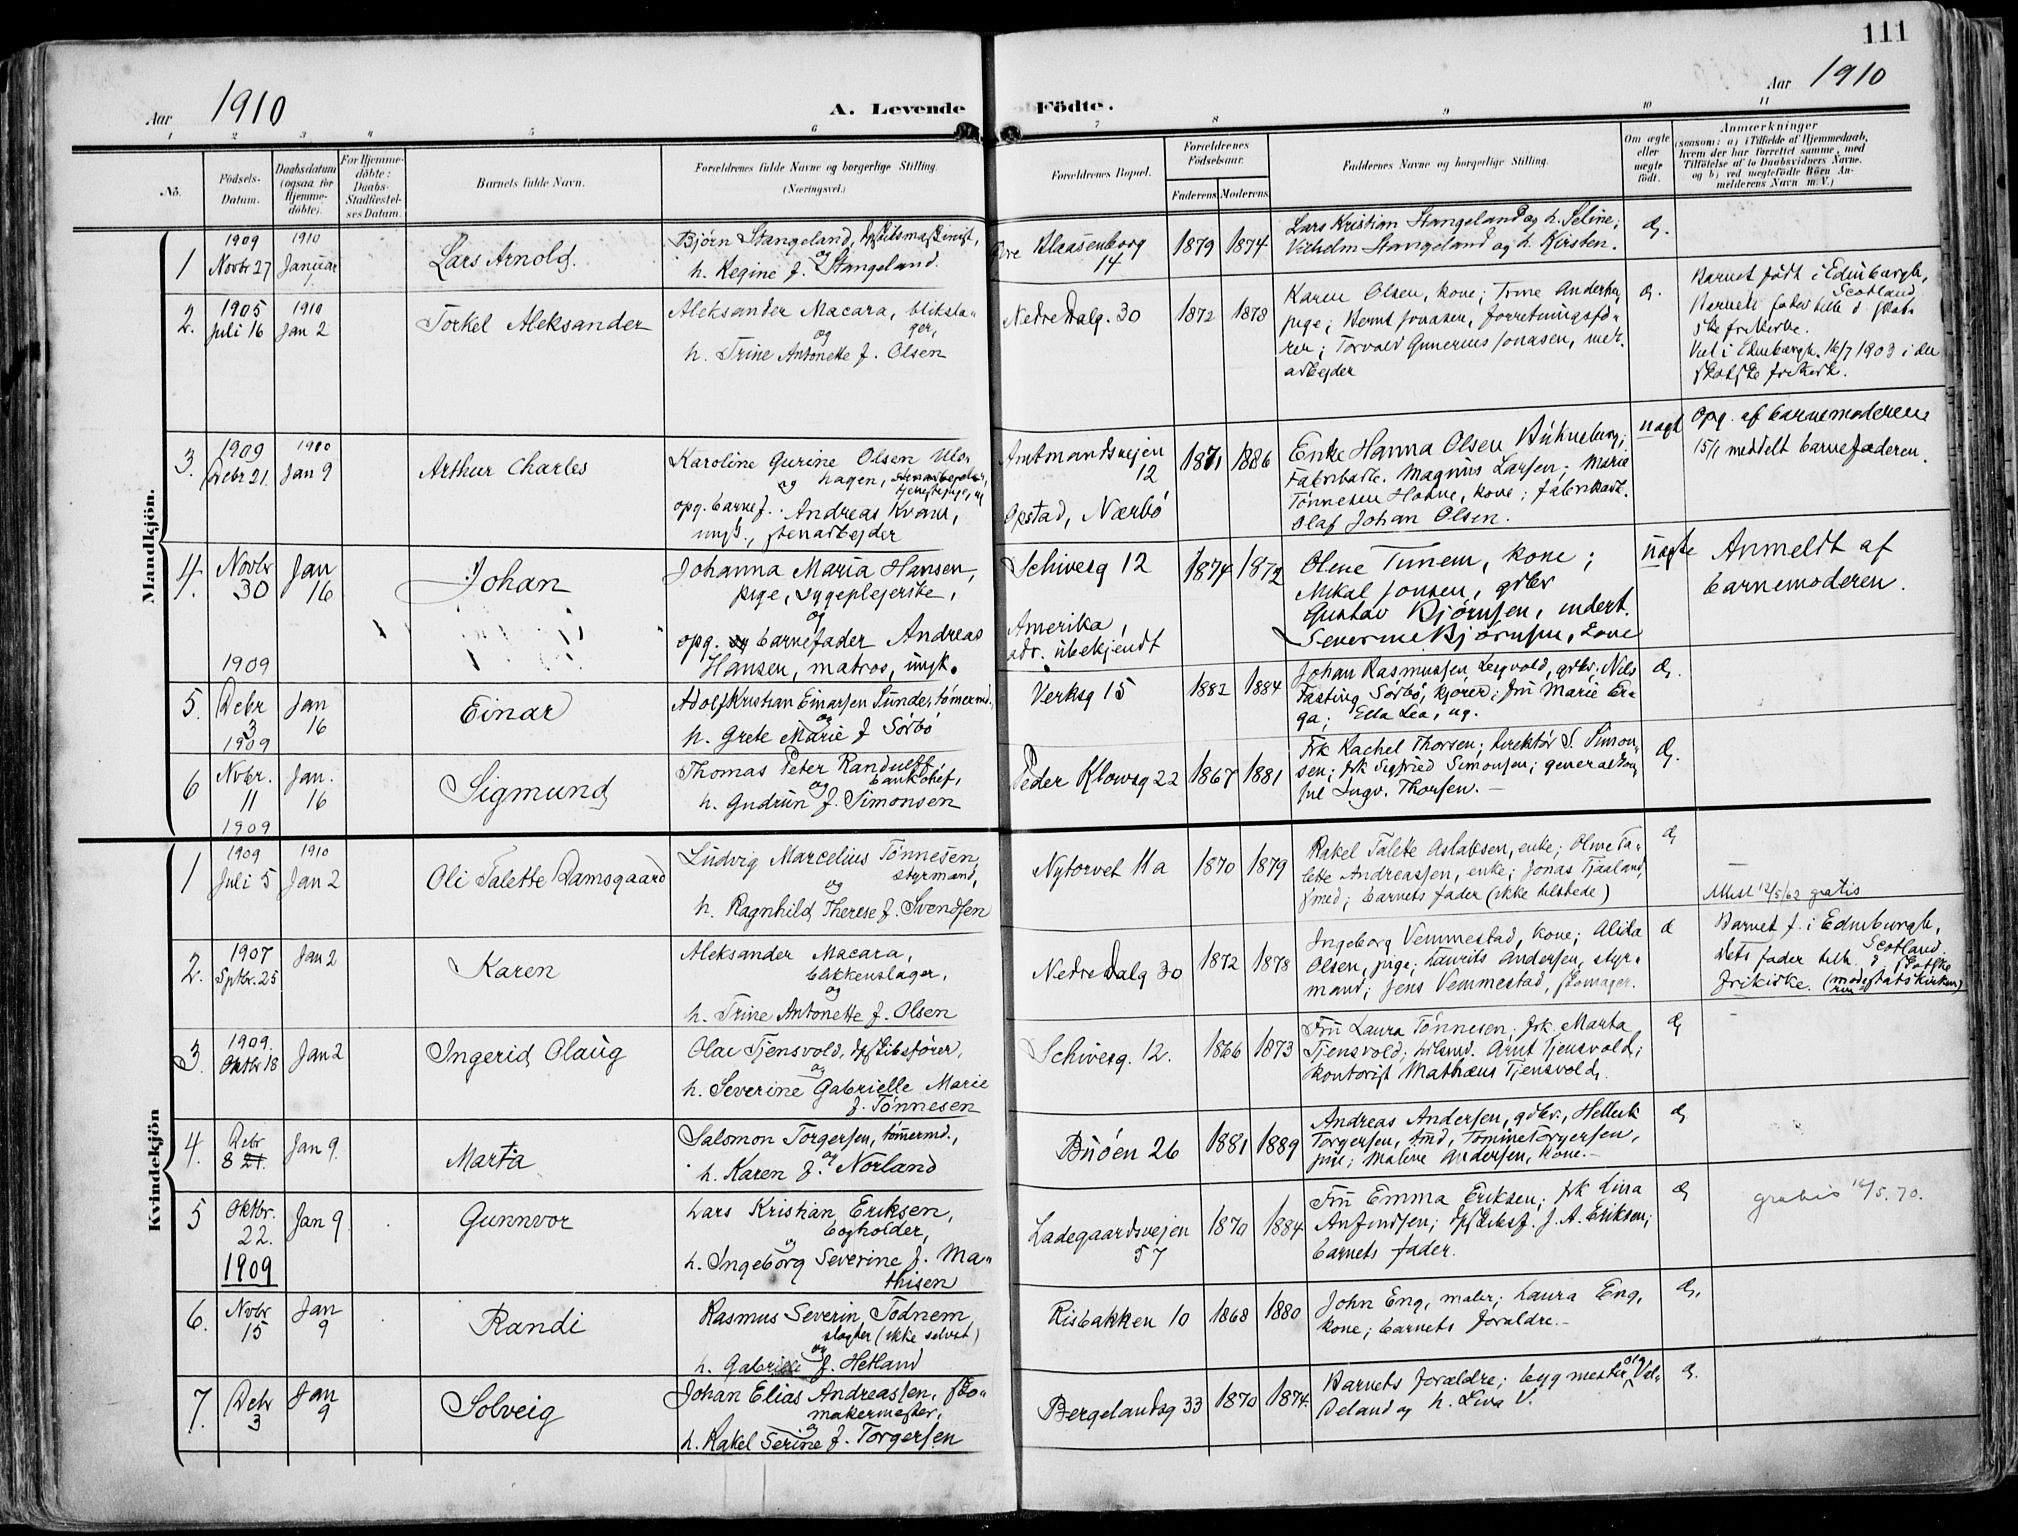 111
Aar 1910
A. Levende Födte.
Aar 1910
1 2 3 4 5 6 7 8 9 10 11
No.
Födsels-
Datum.
Daabsdatum
(ogsaa for
Hjemme-
döbte).
For Hjemme-
döbte:
Daabs-
Stadfæstel-
ses Datum.
Barnets fulde Navn.
Forældrenes fulde Navne og borgerlige Stilling.
(Næringsvei.)
Forældrenes Bopæl.
Forældrenes
Födselsaar.
Faderens Moderens.
Faddernes Navne og borgerlige Stilling.
Om ægte
eller
uægte
födt.
Anmærkninger
(saasom: a) i Tilfælde af Hjemmedaab,
hvem der har forrettet samme, med
Tilföielse af to Daabsvidners Navne.
og b) ved uægtefödte Börn An-
melderens Navn m. V.)
Mandkjön.
1
1909
Novbr 27
1910
Januar
1
Lars Arnold.
Bjørn Stangeland, skibsmaskinist,
og
h. Regine f. Stangeland.
Klaasenborg
14
1879 1874
Lars Kristian Stangeland og h. Seline;
Vilhelm Stangeland og h. Kirsten.
æ.
2.
1905
Juli 16
1910
Jan 2
Torkel Aleksander
Aleksander Macara, bliksla-
ger,
og
h. Trine Antonette f. Olsen
Nedre Dalg. 30
1872 1878
Karen Olsen, kone; Trine
pige; Bernt Jonasen, forretningsfø-
rer; Torvald Gunerius Jonasen,
arbejder
æ.
Barnet født i Edinburgh,
Scotland
Barnets fader tilh. d. skot-
ske frikirke.
Viet i Edinburgh 16/7 1903 i den
skotske frikirke.
3.
1909
Debr 21.
1910
Jan 9
Arthur Charles
Karoline Gurine Olsen Ulve-
hagen,
og
tjenestepige,
opg. barnef. Andreas Kvam,
ungk., stenarbejder
Amtmandsvejen
12
Opstad, Nærbø
1871 1886
Enke Hanna Olsen
Fabrikarb. Magnus Larsen; Marie
Tønnesen Hovne, kone; fabrikarb.
Olaf Johan Olsen.
uægt
Opg. af barnemoderen
15/1 meddelt barnefaderen.
4.
Novbr
30
Jan
16
Johan
Johanna Maria Hansen,
pige, sygeplejerske,
og
opg. barnefader Andreas
Hansen, matros, ungk.
Schivesg 12
Amerika,
adr. ubekjendt
1874 1872
Olene Tunem, kone;
Mikal Jonsen, gdbr
Gustav Bjørnsen,
Severine Bjørnsen, kone
uægte
Anmeldt af
barnemoderen.
5.
1909
Debr
3
Jan
16
Einar
Adolf Kristian Einarsen Tunde, tømermd.
og
h. Grete Marie f Sørbø
Verksg 15
1882 1884
Johan Rasmussen Leyvold, gdbr. Nils
Tasting Sørbø, kjører; fru Marie Er-
ga; Ella Lea, ug.
æ.
6
1909
Nvbr.
11
Jan.
16
Sigmund
Thomas Peter Randulff,
bankchef,
og
h. Gudrun f. Simonsen
Peder Klowsg 22
1867 1881
Frk Rachel Thorsen; direktør S. Simon-
sen; frk Sigfried Simonsen; generalkon-
sul Ingv. Thorsen. —
æ.
1909
Kvindekjön
1
1909
Juli 5
1910
Jan 2
Oli Talette Damsgaard
Ludvig Marcelius Tønnesen,
styrmand,
og
h. Ragnhild Therese f. Svendsen
Nytorvet 11a
1870 1879
Rakel Talette Aslaksen, enke; Oline Ta-
lette Andreassen, enke; Jonas Tjaaland,
smed; barnets fader (ikke tilstede)
æ
Attest 12/5/62 gratis
2.
1907
Sptbr. 25
Jan 2
Karen
Aleksander Macara,
blikkenslager,
og
h. Trine Antonette f. Olsen
Nedre Dalg 30
1872 1878
Ingeborg Vemmestad, kone; Alida
Olsen, pige; Laurits Andersen, styr-
mand; Jens Vemmestad, skomager.
æ
Barnet f. i Edinburgh,
Scotland.
Dets fader tilh. d. skotske
frikirke. (moderen statskirken)
3.
1909.
Oktbr 18
Jan 2
Ingerid Olaug
Olai Tjensvold, skibsfører,
og
h. Severine Gabrielle Marie
f. Tønnesen
Schivesg. 12.
1866 1873
Fru Laura Tønnesen; frk. Marta
Tjensvold; Arnt Tjensvold;
kontorist Mathæus Tjensvold.
æ
4.
Debr
8 21.
Jan 9.
Marta
Salomon Torgersen, tømermd.,
og
h. Karen f. Norland
Buøen 26
1881 1889
Andreas Andersen, gdbr.,
Torgersen, Tomine Torgersen,
pige; Maline Andersen, kone.—
æ
5
Oktbr.
22.
1909
Jan 9.
Gunnvor
Lars Kristian Eriksen,
bogholder,
og
h. Ingeborg Severine f. Ma-
thisen
Ladegaardsvejen
57
1870 1884
Fru Emma Eriksen; frk Lina
Anfindsen; skibsf. J. A. Eriksen;
barnets fader.
æ
gratis 12/5.70.
6.
Nvbr
15
Jan
9
Randi
Rasmus Severin Tødnem,
slagter (ikke selvst)
og
h. Gabrielle f. Hetland
Risbakken 10
1868 1880
John Eng, maler; Laura Eng,
kone; barnets forældre.—
æ.
7.
Debr
3
Jan
9
Solveig
Johan Elias Andreassen, sko-
makermester,
og
h. Rakel Serine f. Torgersen
Bergelandsg 33
1870 1874.
Barnets forældre; bygmester Ola Vel-
deland og h. Lina V.
æ.